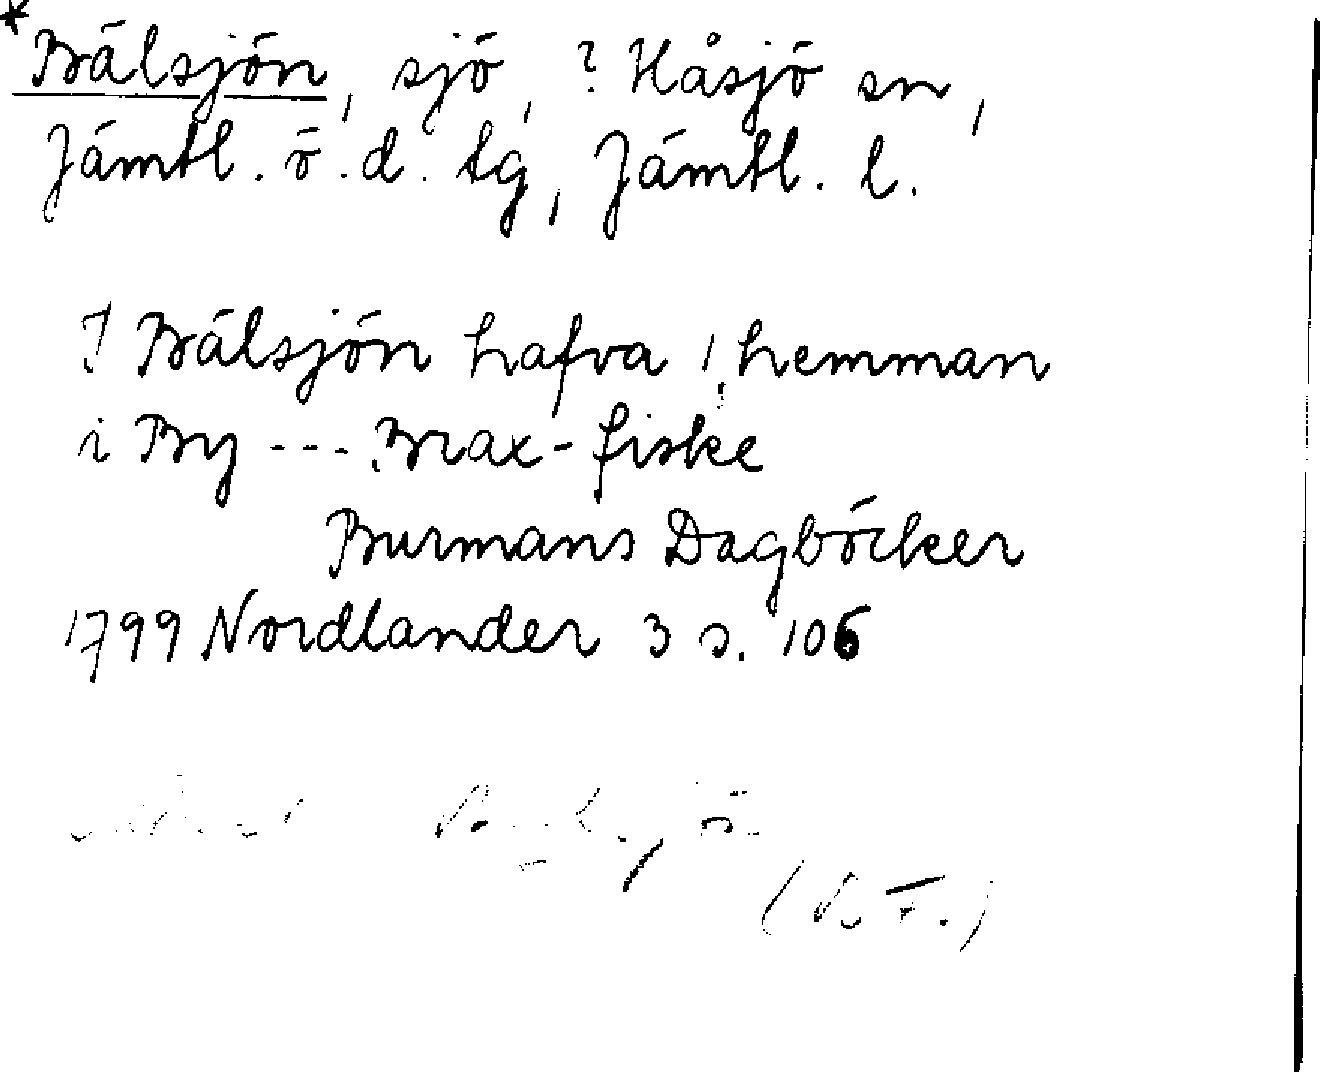 *Bälsjön, sjö, ? Håsjö sn,
Jämtl. ö. d. tg, Jämtl. l.
I Bälsjön hafva ! hemman
i By --- Brax-fiske
Burmans Dagböcker
1799 Nordlander 3 s. 106